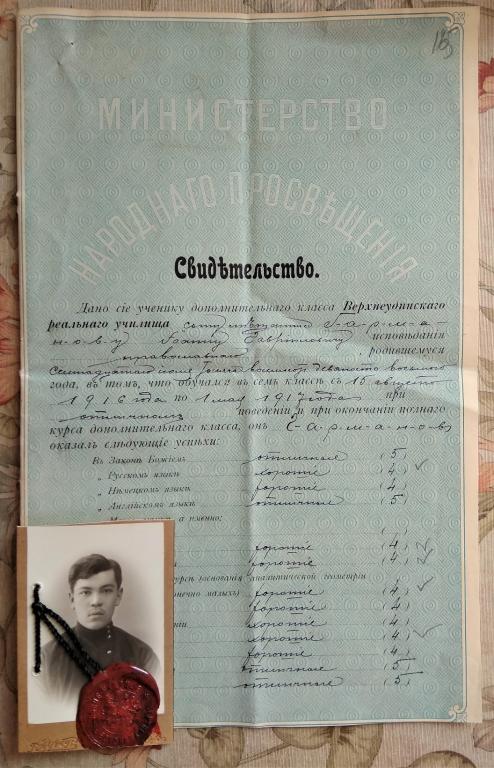 165
МИНИСТЕРСТВО
НАРОДНАГО ПРОСВѢЩЕНІЯ
Свидѣтельство.
Дано сіе ученику дополнительнаго класса Верхнеудинскаго
реальнаго училища сыну священника Г-а-р-м-а-
н-о-в-у Іоанну Гавриловичу исповѣданія
православнаго, родившемуся
Семнадцатаго іюня тысяча восемьсотъ девяносто восьмого
года, въ томъ, что обучался въ семъ классѣ съ 15 августа
1916 года по 1 мая 1917 года при
отличномъ поведеніи и при окончаніи полнаго
курса дополнительнаго класса, онъ Г-а-р-м-а-н-о-въ
оказалъ слѣдующіе успѣхи:
Въ Законѣ Божіемъ отличные (5)
„ Русскомъ языкѣ хорошіе (4)
„ Нѣмецкомъ языкѣ хорошіе (4)
„ Англійскомъ языкѣ отличные (5)
а именно:
хорошіе (4)
хорошіе (4)
(основанія аналитической геометріи
конечно малыхъ) хорошіе (4)
хорошіе (4)
хорошіе (4)
хорошіе (4)
хорошіе (4)
отличные (5)
отличные (5)